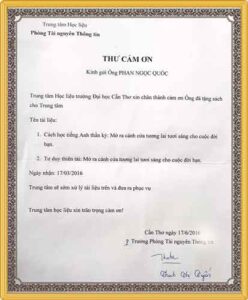 Trung tâm Học liệu
Phòng Tài nguyên Thông tin
THƯ CẢM ƠN
Kính gửi Ông PHAN NGỌC QUỐC
Trung tâm Học liệu trường Đại học Cần Thơ xin chân thành cảm ơn Ông đã tặng sách
cho Trung tâm
Tên tài liệu:
1. Cách học tiếng Anh thần kỳ: Mở ra cánh cửa tương lai tươi sáng cho cuộc đời
bạn.
2. Tư duy thiên tài: Mở ra cánh cửa tương lai tươi sáng cho cuộc đời bạn.
Ngày nhận: 17/03/2016
Trung tâm sẽ sớm xử lý tài liệu trên và đưa ra phục vụ
Trung tâm học liệu xin trân trọng cảm ơn!
Cần Thơ ngày 17/6/2016
Trưởng Phòng Tài nguyên Thông tin